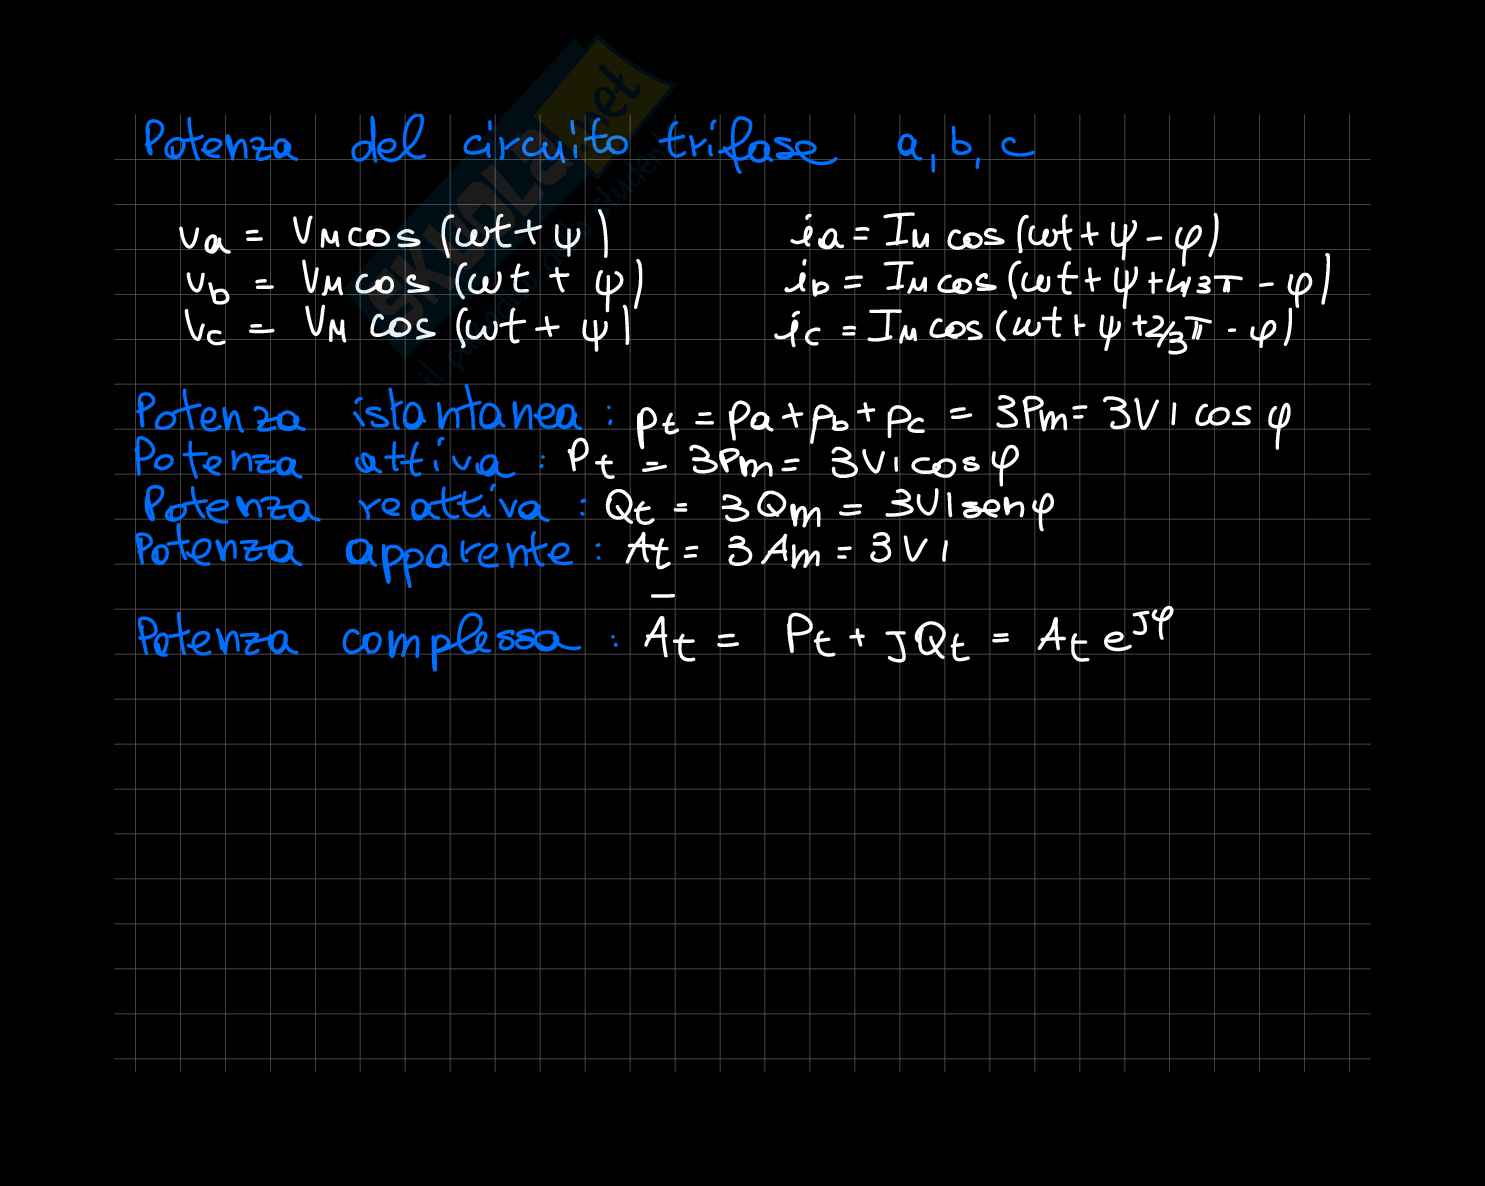 Potenza del circuito trifase a, b, c
va = VM cos (ωt + ψ) ia = IM cos (ωt + ψ - φ)
vb = VM cos (ωt + ψ) ib = IM cos (ωt + ψ + 4/3π - φ)
vc = VM cos (ωt + ψ) ic = IM cos (ωt + ψ + 2/3π - φ)
Potenza istantanea : pt = pa + pb + pc = 3Pm = 3VI cos φ
Potenza attiva : Pt = 3Pm = 3VI cos φ
Potenza reattiva : Qt = 3Qm = 3VI sen φ
Potenza apparente : At = 3Am = 3VI
Potenza complessa : A̅t = Pt + jQt = At e^jφ
SKUOLA.net